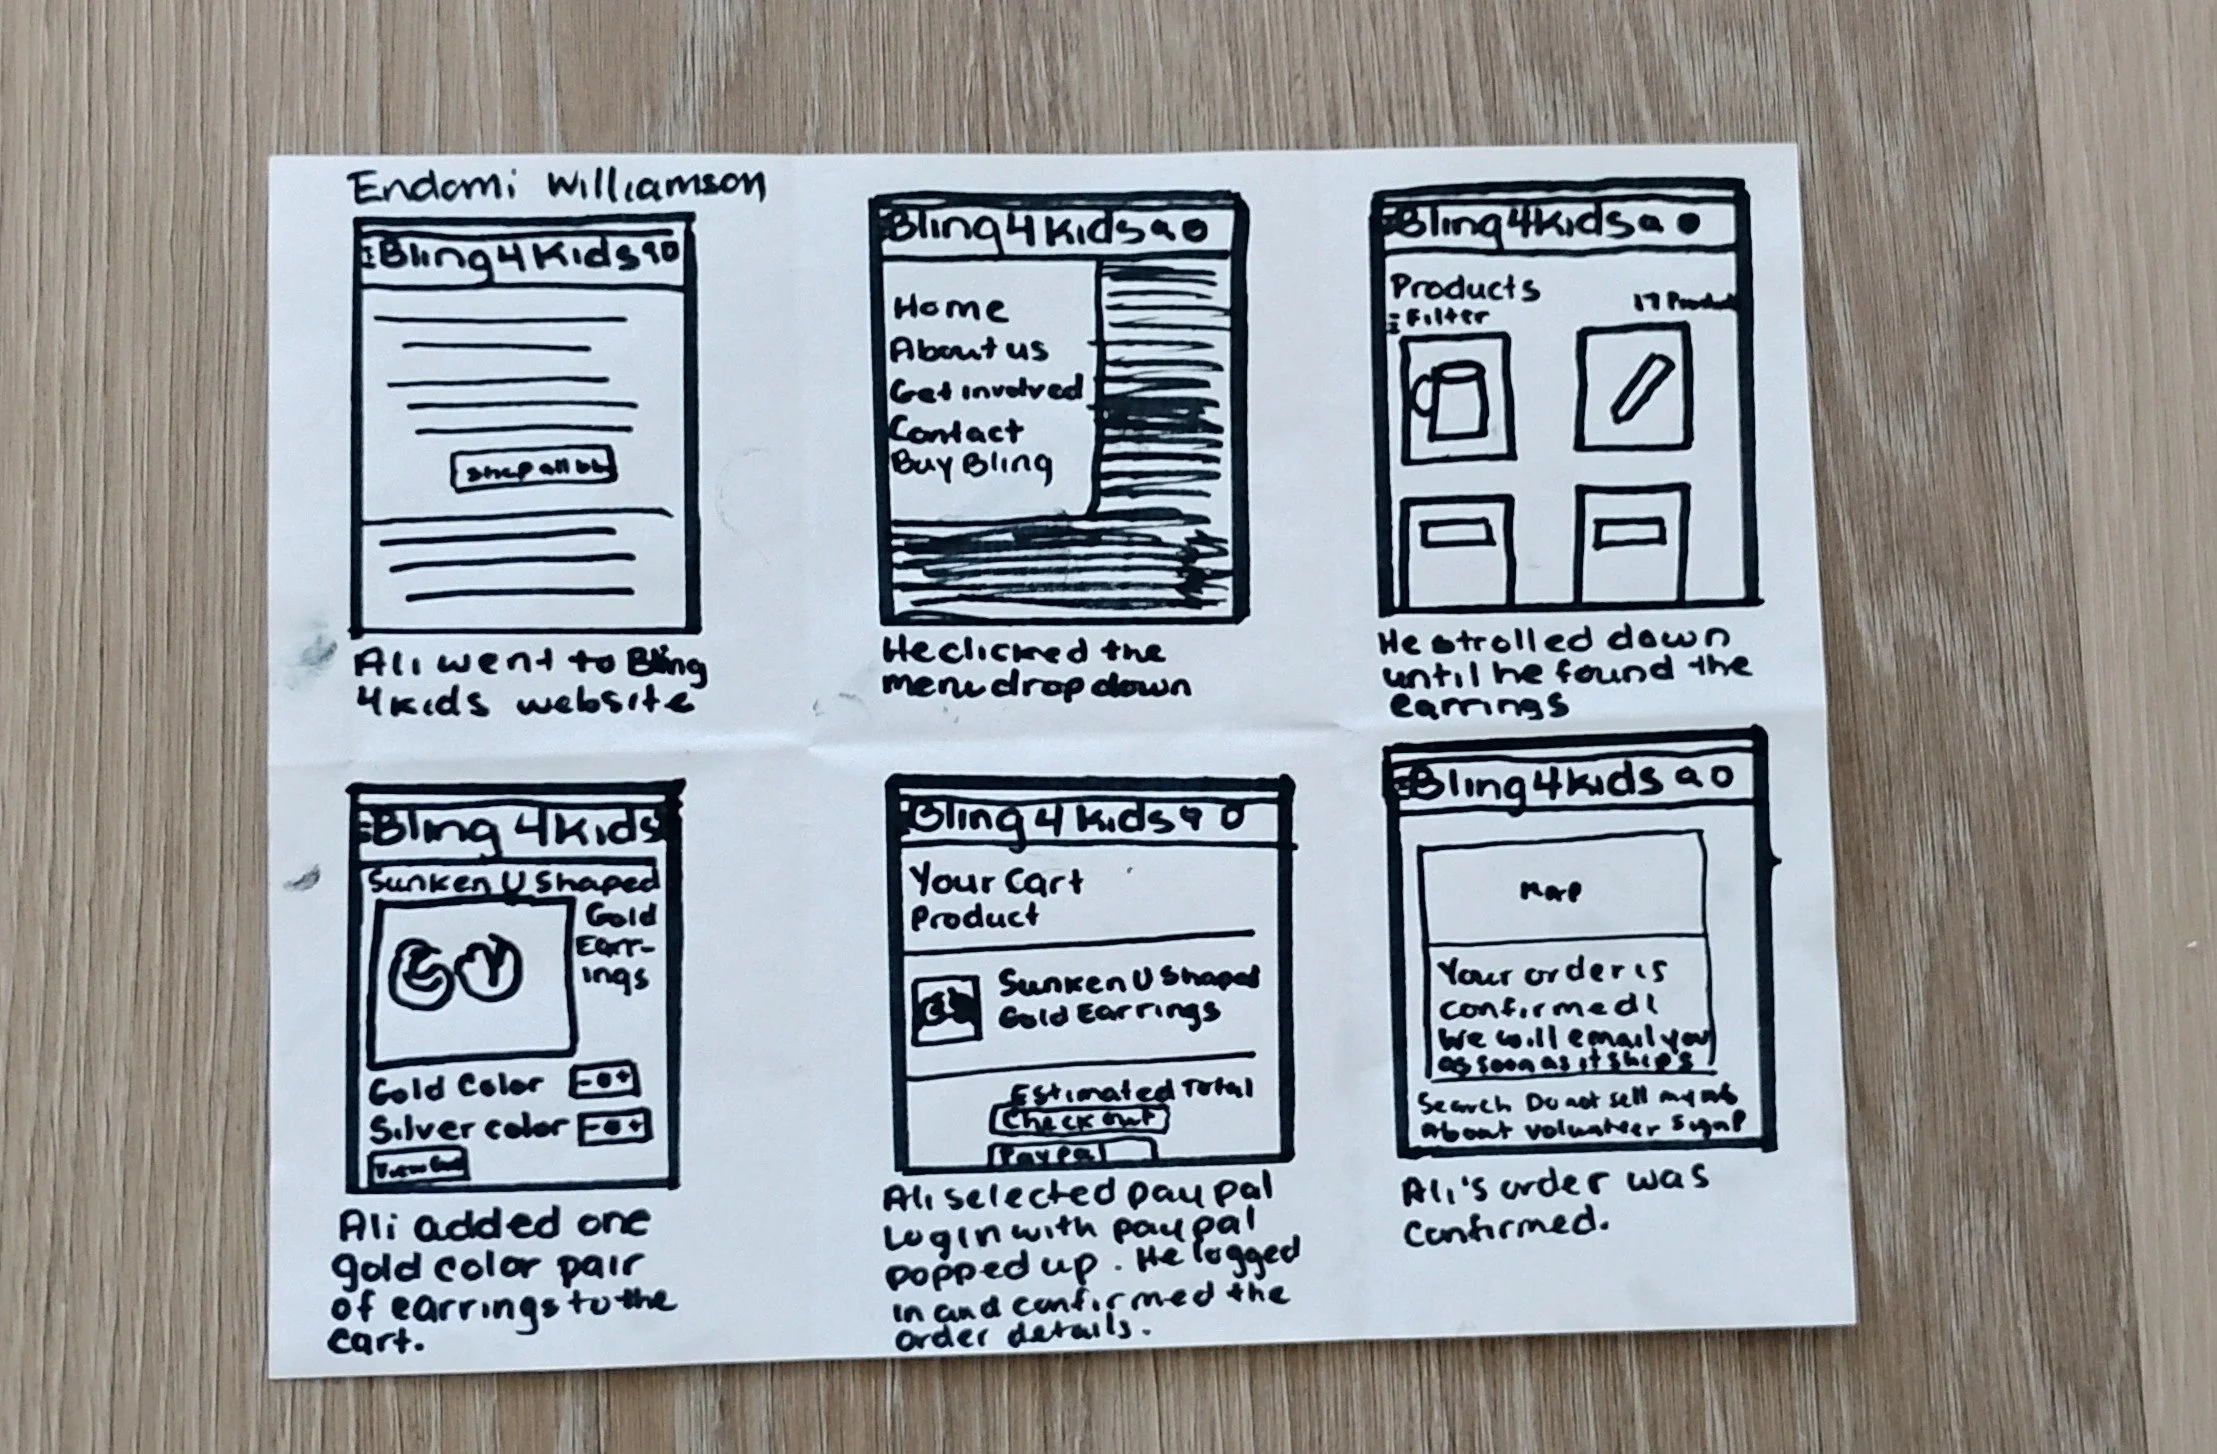 Endomi Williamson
Bling4Kids
Shop all
Ali went to Bling
4kids website
Bling4Kids
Home
About us
Get involved
Contact
Buy Bling
He clicked the
menu drop down
Bling4Kids
Products
17 Products
Filter
He strolled down
until he found the
earrings
Bling 4Kids
Sunken U Shaped
Gold
Earr-
ings
Gold Color - 0 +
Silver color - 0 +
View Cart
Ali added one
gold color pair
of earrings to the
cart.
Bling 4 Kids
Your Cart
Product
Sunken U Shaped
Gold Earrings
Estimated Total
Check out
PayPal
Ali selected paypal
Login with paypal
popped up. He logged
in and confirmed the
order details.
Bling4kids
Map
Your order is
confirmed!
We will email you
as soon as it ship's
Search Do not sell my
About Volunteer Signup
Ali's order was
confirmed.